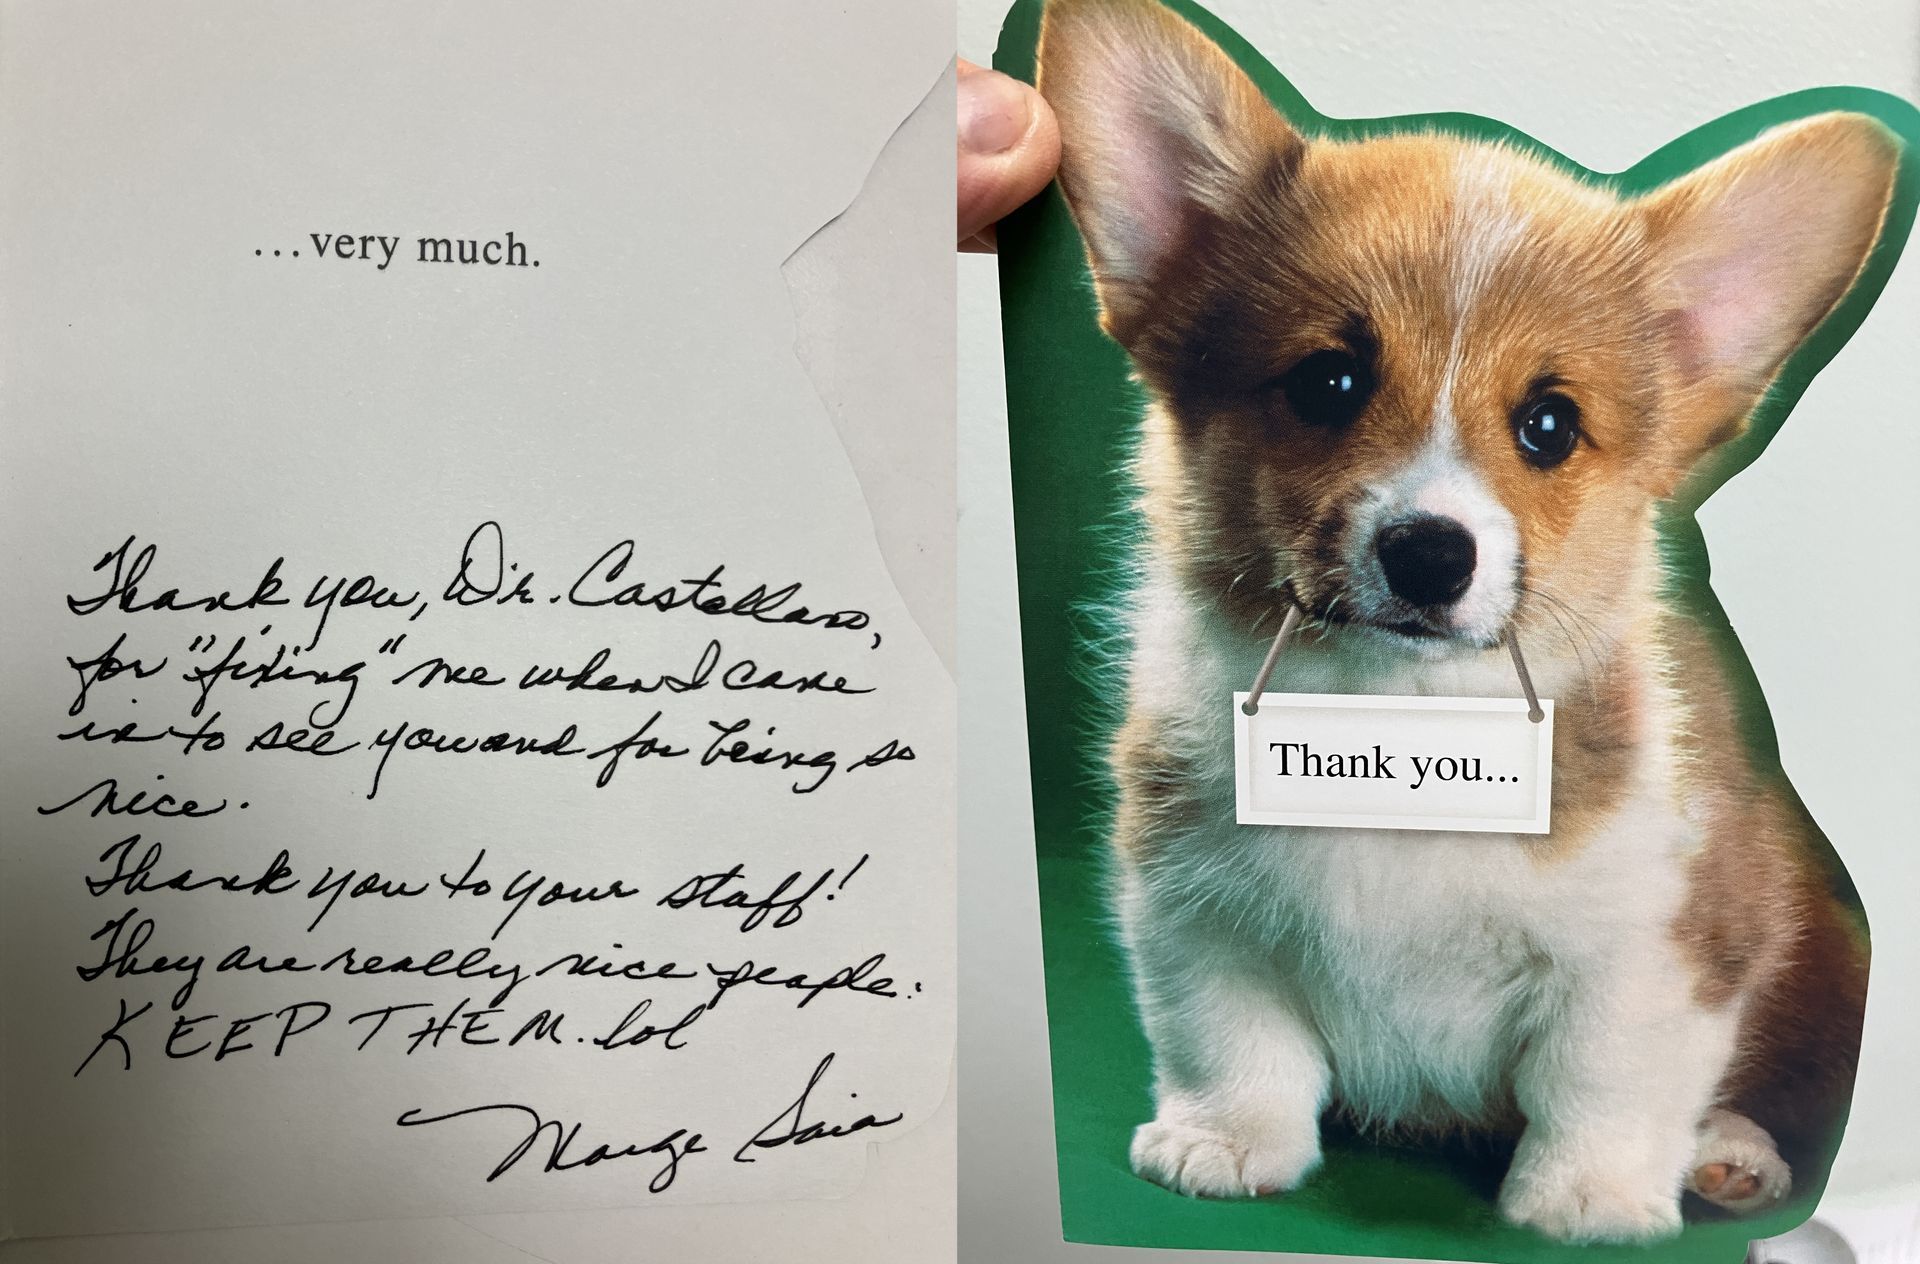 ...very much.
Thank you, Dr. Castellano,
for "fixing" me when I came
in to see you and for being so
nice.
Thank you to your staff!
They are really nice people.
KEEP THEM. lol
Marge Saia
Thank you...